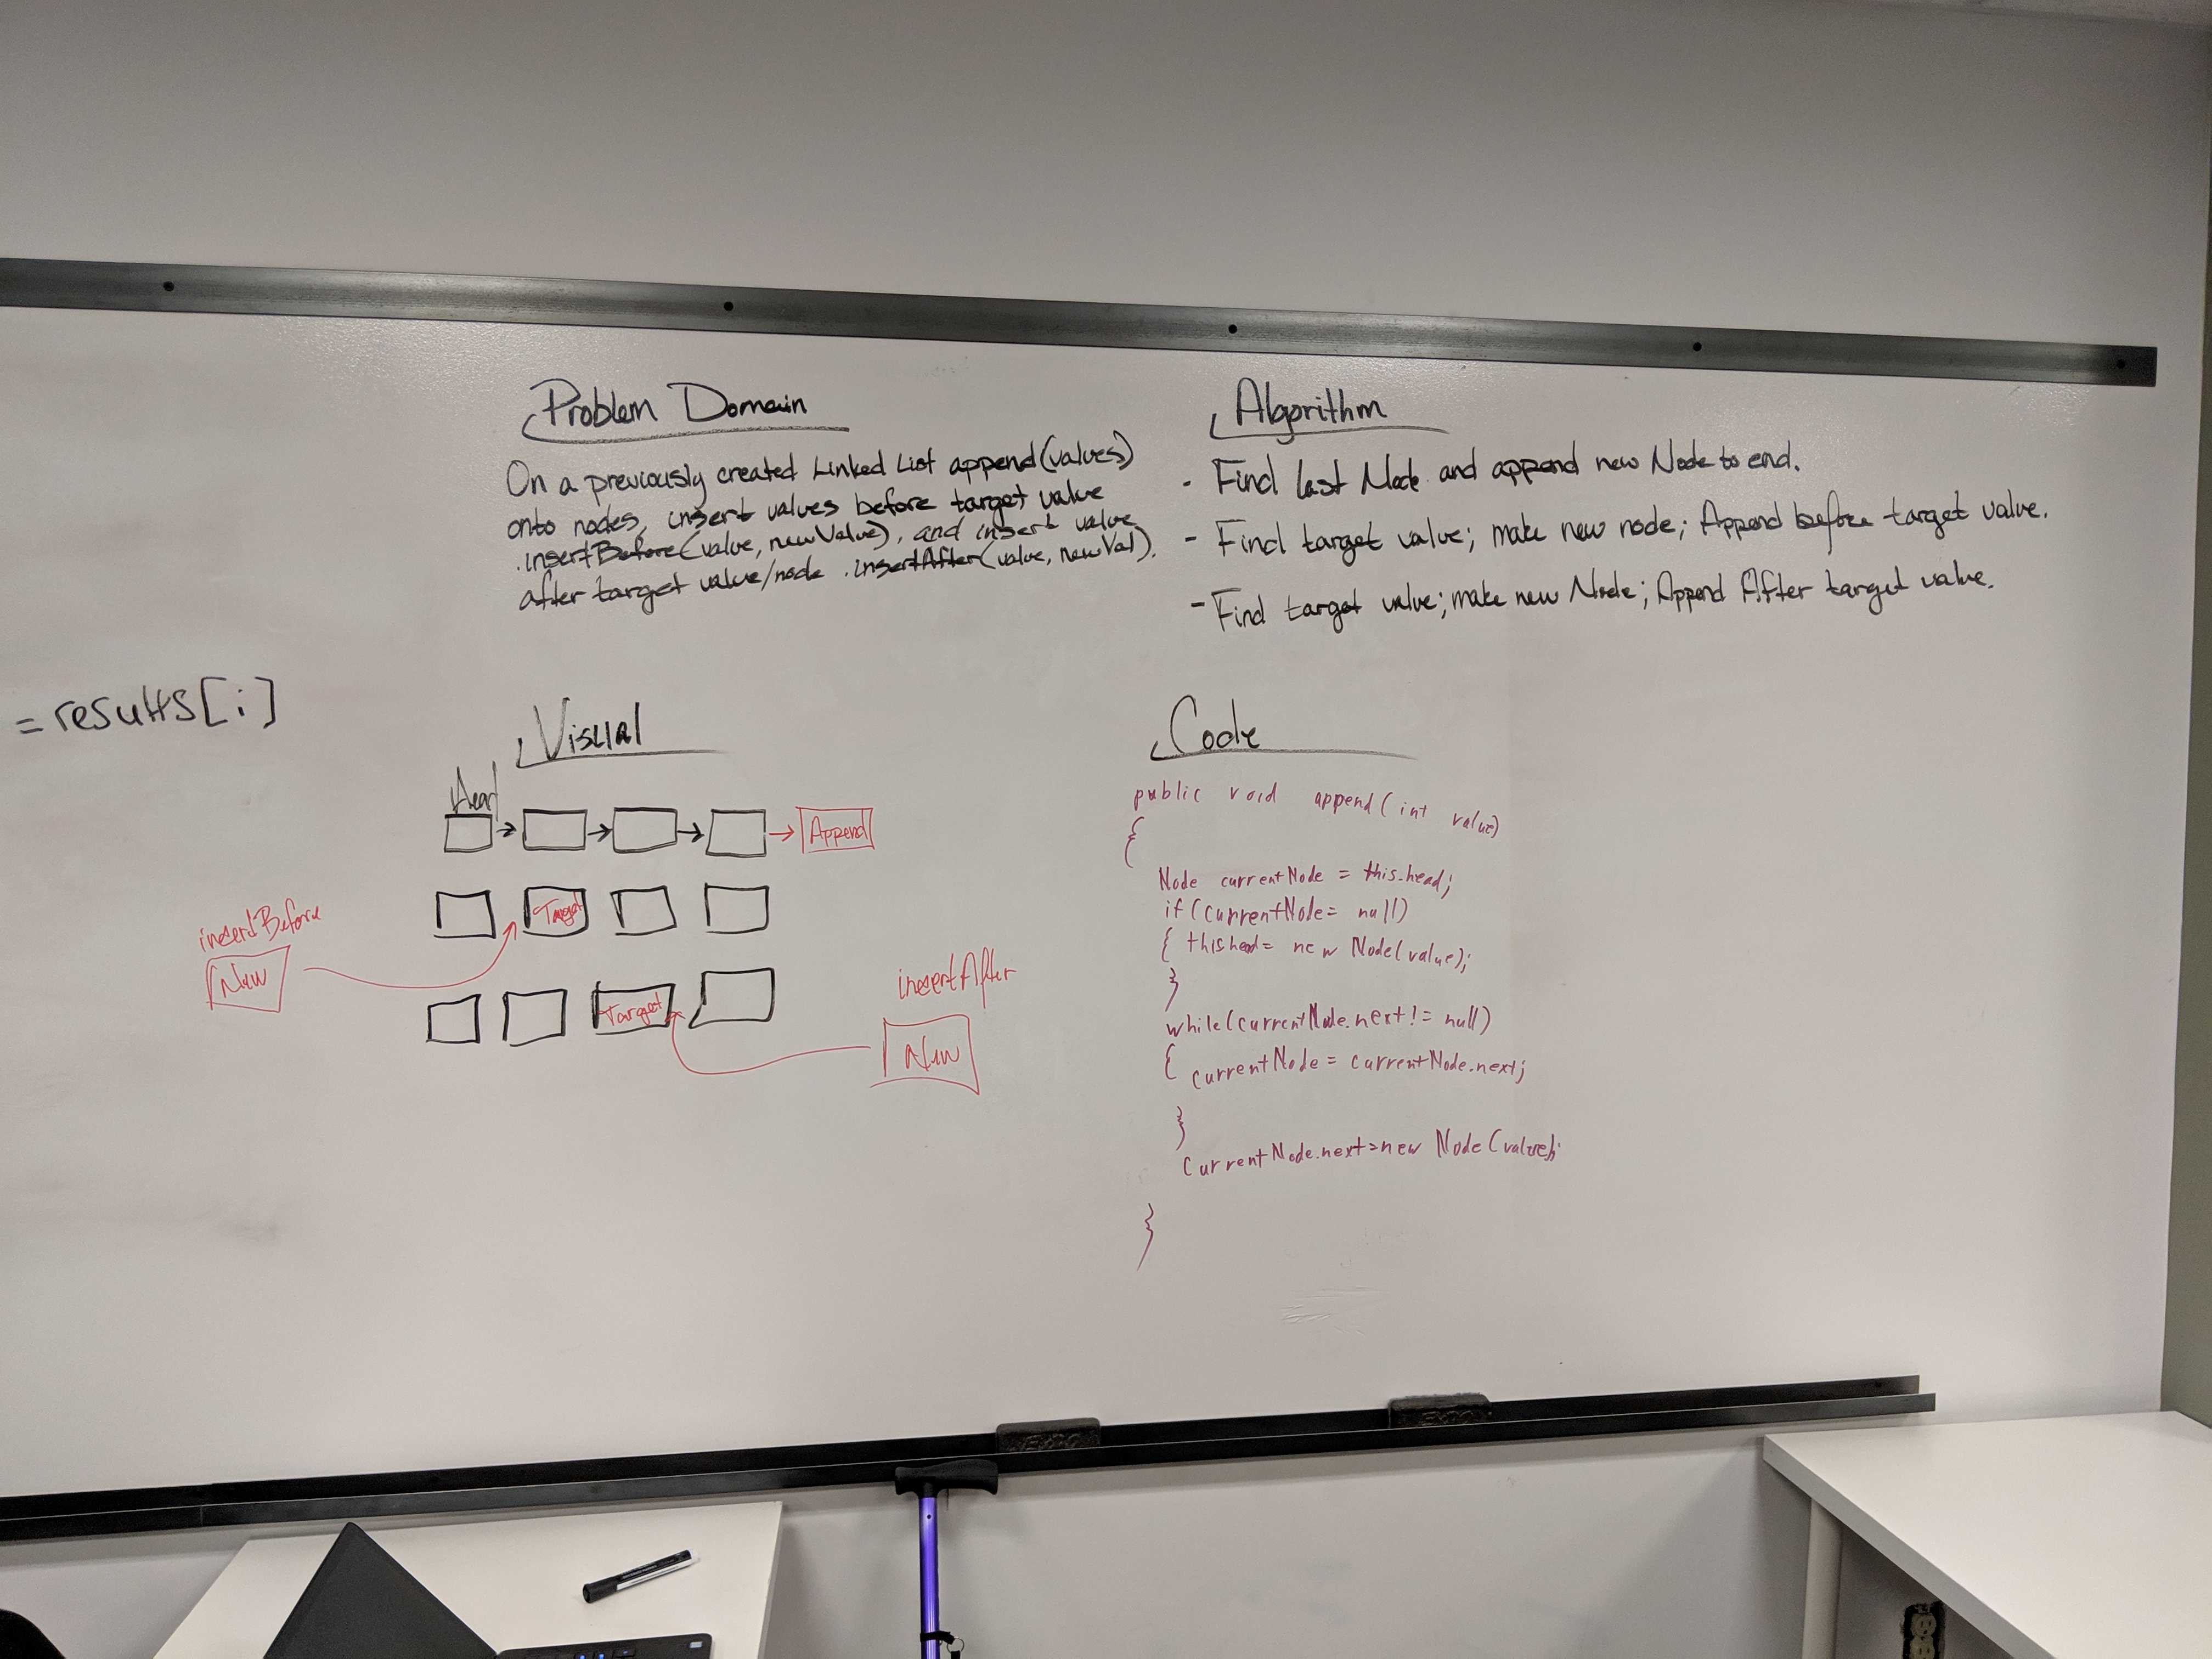 Problem Domain
On a previously created Linked List append(values)
onto nodes, insert values before target value
.insertBefore(value, newValue), and insert value
after target value/node .insertAfter(value, newVal).
Algorithm
- Find last Node and append new Node to end.
- Find target value; make new node; Append before target value.
- Find target value; make new Node; Append After target value.
= results[i]
Visual
Head
Append
insertBefore
New
Target
Target
insertAfter
New
Code
public void append(int value)
{
Node currentNode = this.head;
if(currentNode= null)
{ this.head= new Node(value);
}
while(currentNode.next != null)
{ currentNode = currentNode.next;
}
currentNode.next=new Node(value);
}
EXPO
EXPO